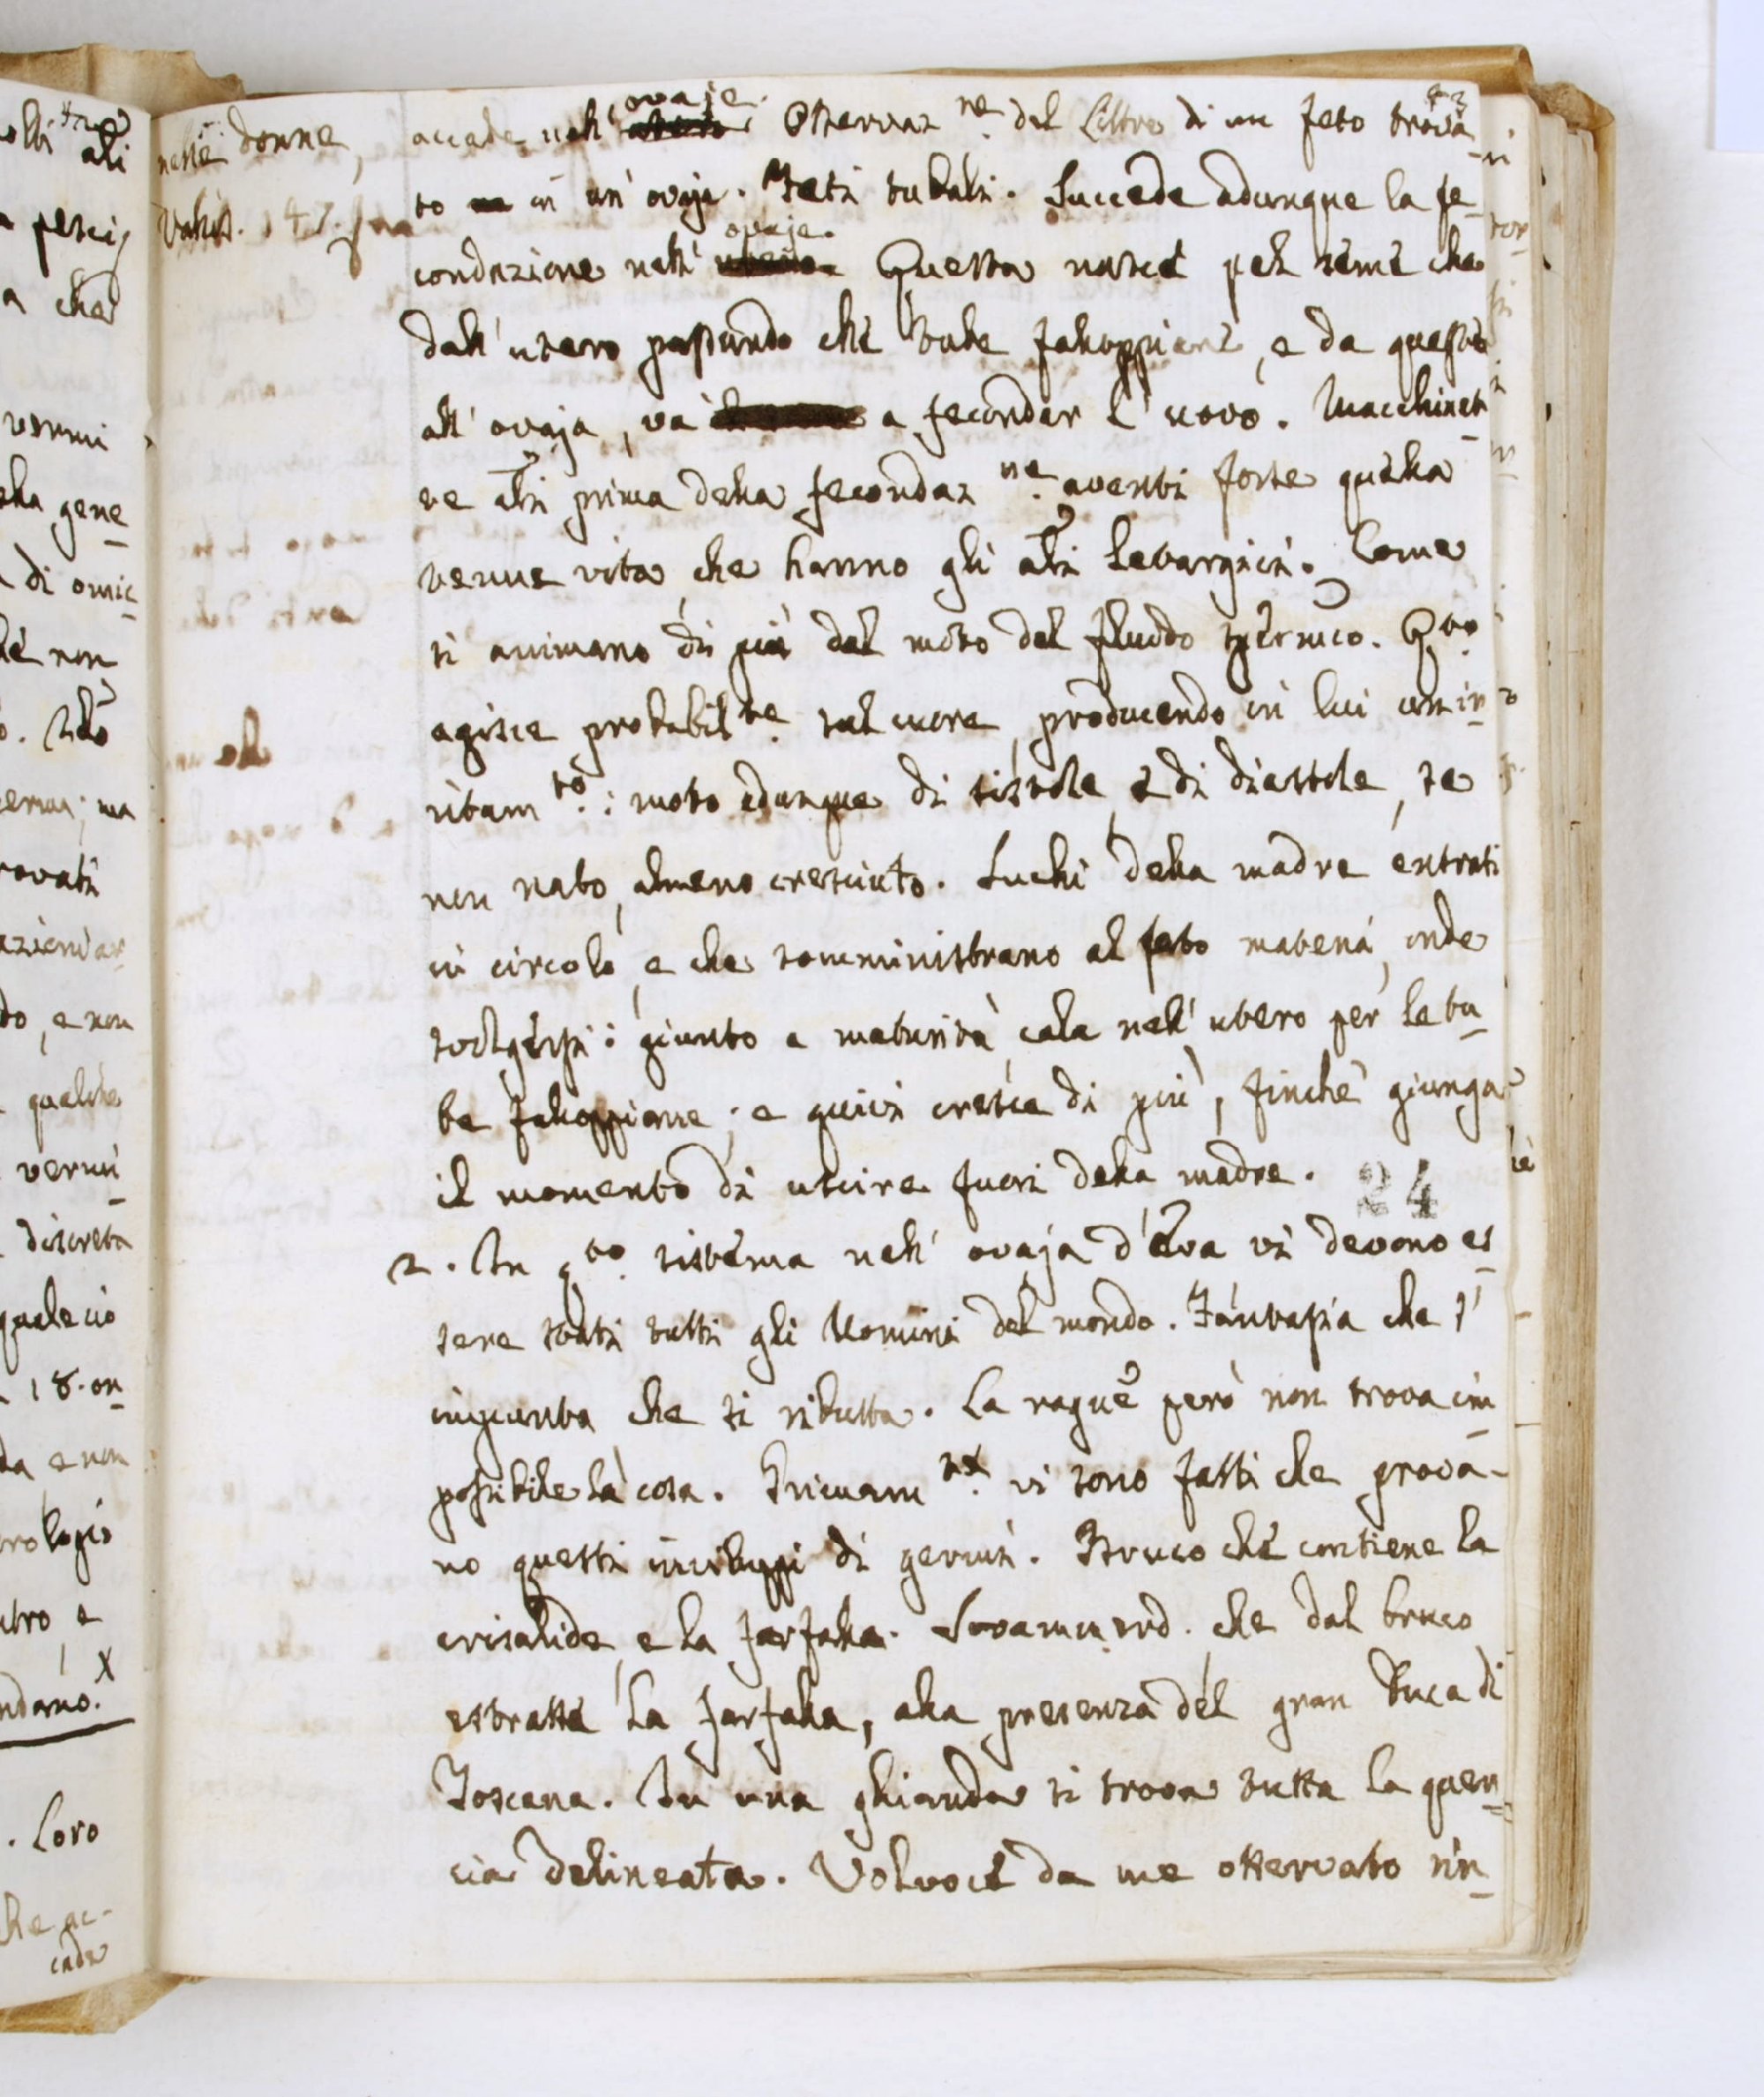 nelle donne,
Valisn. 147.
accade nell' ovaje. Osservaz.ne del Littre di un feto trova
to in un' ovaja. Feti tubali. Succede adunque la fe
condazione nell' ovaje. Questa nasce pel seme che
dall' utero passando alle tube falloppiane, e da queste
all' ovaja, va a fecondar l' uovo. Macchinet
te tali prima della fecondaz.ne aventi forse quella
tenue vita che hanno gli altri letargici. Come
si animano di più dal moto del fluido spermico. Qto
agisce probabil.te sul cuore, producendo in lui un ir
ritam.to: moto adunque di sistole, e di diastole, se
non nato, almeno cresciuto. Succhi della madre entrati
in circolo, e che somministrano al feto materia, onde
svolgersi: giunto a maturità cala nell' utero per le tu
be falloppiane; e quivi cresce di più, finchè giunga
il momento di uscire fuori della madre.
24
2. In qto sistema nell' ovaja d' Eva vi devono es
sere stati tutti gli Uomini del mondo. Fantasia che s'
inpunta che si ributta. La ragne però non trova im
possibile la cosa. Primam.te vi sono fatti che prova-
no questi inviluppi di germi. Bruco che contiene la
crisalide, e la farfalla. Svvammerd. che dal bruco
estrasse la farfalla, alla presenza del gran Duca di
Toscana. In una ghianda si trova tutta la quer
cia delineata. Volvoce da me osservato rin